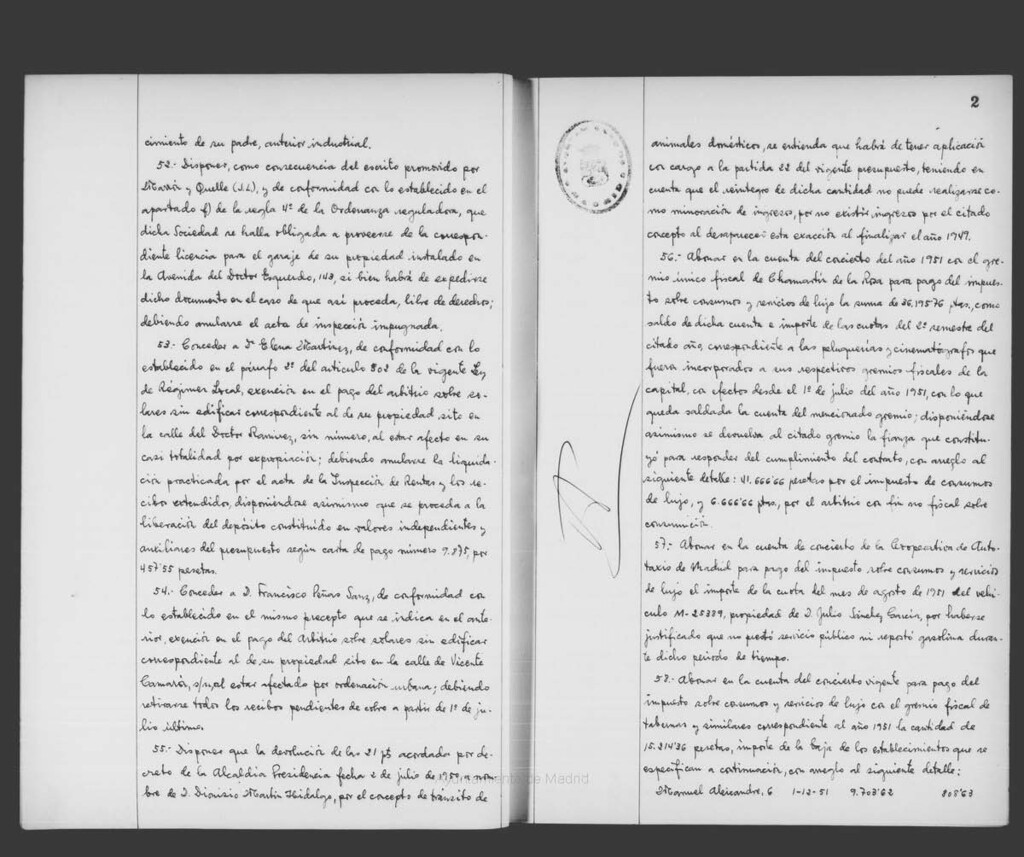 cimiento de su padre, anterior industrial.
52.- Disponer, como consecuencia del escrito promovido por
y Quelle (S.L), y de conformidad con lo establecido en el
apartado f) de la regla 4ª de la Ordenanza reguladora, que
dicha Sociedad se halla obligada a proveerse de la correspon-
diente licencia para el garaje de su propiedad instalado en
la Avenida del Doctor Esquerdo, 143, si bien habrá de expedirse
dicho documento en el caso de que así proceda, libre de derechos;
debiendo anularse el acta de inspección impugnada.
53.- Conceder a Dª Elena Martínez, de conformidad con lo
establecido en el párrafo 2º del artículo 502 de la vigente Ley
de Régimen Local, exención en el pago del arbitrio sobre so-
lares sin edificar correspondiente al de su propiedad sito en
la calle del Doctor Ramírez, sin número, al estar afecto en su
casi totalidad por expropiación; debiendo anularse la liquida-
ción practicada por el acta de la Inspección de Rentas y los re-
cibos extendidos, disponiéndose asimismo que se proceda a la
liberación del depósito constituído en valores independientes y
auxiliares del presupuesto según carta de pago número 9.875, por
457'55 pesetas.
54.- Conceder a D. Francisco Peñas Sanz, de conformidad con
lo establecido en el mismo precepto que se indica en el ante-
rior, exención en el pago del Arbitrio sobre solares sin edificar
correspondiente al de su propiedad sito en la calle de Vicente
Camarón, s/n, al estar afectado por ordenación urbana; debiendo
retirarse todos los recibos pendientes de cobro a partir de 1º de ju-
lio último.
55.- Disponer que la devolución de las 21 pts acordado por de-
creto de la Alcaldía Presidencia fecha 2 de julio de 1950, a nom-
bre de D. Dionisio Martín Hidalgo, por el concepto de tránsito de
2
animales domésticos, se entienda que habrá de tener aplicación
con cargo a la partida 22 del vigente presupuesto, teniendo en
cuenta que el reintegro de dicha cantidad no puede realizarse co-
mo minoración de ingreso, por no existir ingresos por el citado
concepto al desaparecer esta exacción al finalizar el año 1947.
56.- Abonar en la cuenta del concierto del año 1951 con el gre-
mio único fiscal de Chamartín de la Rosa para pago del impues-
to sobre consumos y servicios de lujo la suma de 36.195'76 ptas, como
saldo de dicha cuenta e importe de las cuotas del 2º semestre del
citado año, correspondiente a las peluquerías y cinematógrafos que
fuera incorporados a sus respectivos gremios fiscales de la
capital, con efectos desde el 1º de julio del año 1951, con lo que
queda saldada la cuenta del mencionado gremio; disponiéndose
asimismo se devuelva al citado gremio la fianza que constitu-
yó para responder del cumplimiento del contrato, con arreglo al
siguiente detalle: 41.666'66 pesetas por el impuesto de consumos
de lujo, y 6.666'66 ptas, por el arbitrio con fin no fiscal sobre
consumición.
57.- Abonar en la cuenta de concierto de la Cooperativa de Auto-
taxis de Madrid para pago del impuesto sobre consumos y servicios
de lujo el importe de la cuota del mes de agosto de 1951 del vehí-
culo M-25339, propiedad de D. Julio Sánchez García, por haberse
justificado que no prestó servicio público ni repostó gasolina duran-
te dicho período de tiempo.
58.- Abonar en la cuenta del concierto vigente para pago del
impuesto sobre consumos y servicios de lujo con el gremio fiscal de
tabernas y similares correspondiente al año 1951 la cantidad de
15.214'36 pesetas, importe de la baja de los establecimientos que se
especifican a continuación, con arreglo al siguiente detalle:
Manuel Aleixandre, 6 1-12-51 9.703'62 808'63